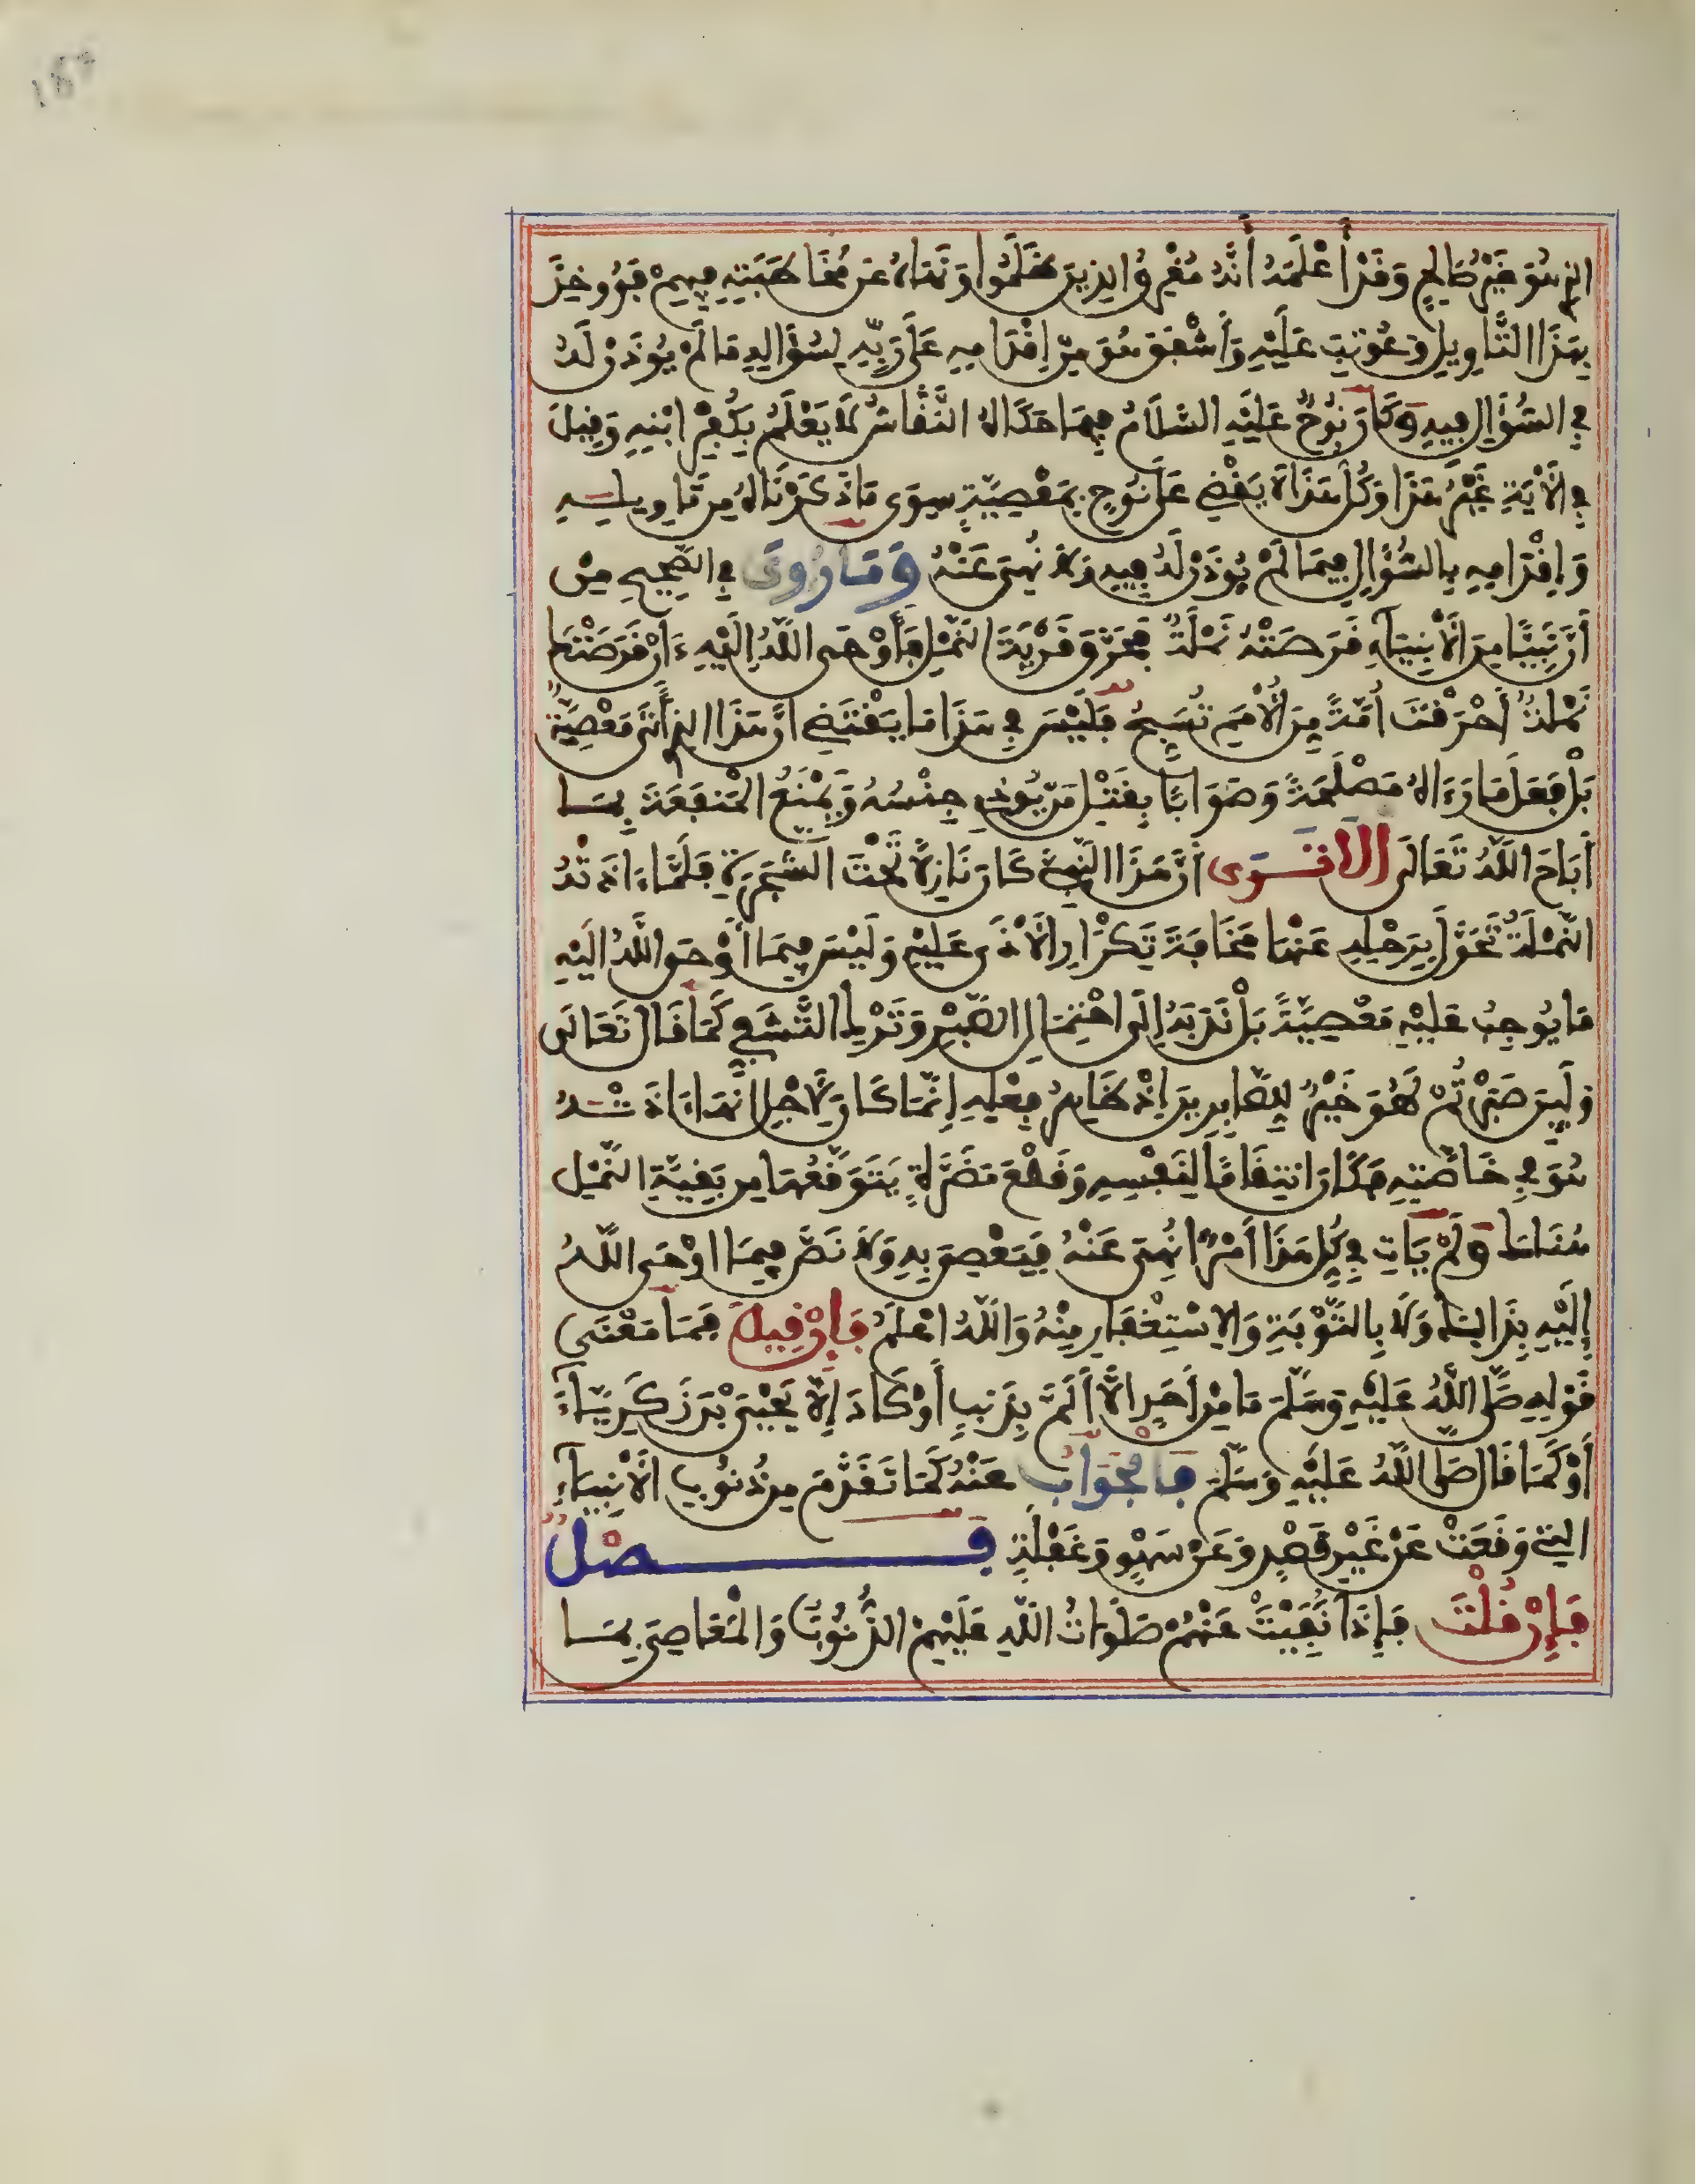 الذي هُوَ غَيْرُ صَالِحٍ وَقَدْ أَعْلَمَهُ أَنَّهُ مُغْرِقُ الذِينَ ظَلَمُوا وَنَهَاهُ عَنْ مُخَاطَبَتِهِ فِيهِمْ فَوُوخِذَ
بِهَذَا التَّاوِيلِ وَعُوتِبَ عَلَيْهِ وَأَشْفَقَ هُوَ مِنْ إِقْدَامِهِ عَلَى رَبِّهِ لِسُؤَالِهِ مَا لَمْ يُوذَنْ لَهُ
فِي السُّؤَالِ فِيهِ وَكَانَ نُوحٌ عَلَيْهِ السَّلَامُ فِيمَا حَكَاهُ النَّقَّاشُ لَا يَعْلَمُ بِكُفْرِ ابْنِهِ وَقِيلَ
فِي الْآيَةِ غَيْرُ هَذَا وَكُلُّ هَذَا لَا يَقْضِي عَلَى نُوحٍ بِمَعْصِيَةٍ سِوَى مَا ذَكَرْنَاهُ مِنْ تَاوِيلِهِ
وَإِقْدَامِهِ بِالسُّؤَالِ فِيمَا لَمْ يُوذَنْ لَهُ فِيهِ وَلَا نُهِيَ عَنْهُ وَمَا رُوِيَ فِي الصَّحِيحِ مِنْ
أَنَّ نَبِيئًا مِنَ الْأَنْبِيَاءِ قَرَصَتْهُ نَمْلَةٌ فَحَرَّقَ قَرْيَةَ النَّمْلِ فَأَوْحَى اللَّهُ إِلَيْهِ ءَانْ قَرَصَتْكَ
نَمْلَةٌ أَحْرَقْتَ أُمَّةً مِنَ الْأُمَمِ تُسَبِّحُ فَلَيْسَ فِي هَذَا مَا يَقْتَضِي أَنَّ هَذَا الذي أَتَى مَعْصِيَةٌ
بَلْ فَعَلَ مَا رَءَاهُ مَصْلَحَةً وَصَوَابًا بِقَتْلِ مَنْ يُوذِي جِنْسُهُ وَيَمْنَعُ الْمَنْفَعَةَ بِمَا
أَبَاحَ اللَّهُ تَعَالَى أَلَا تَرَى أَنَّ هَذَا النَّبِيَّ كَانَ نَازِلًا تَحْتَ الشَّجَرَةِ فَلَمَّا ءَاذَتْهُ
النَّمْلَةُ تَحَوَّلَ بِرَحْلِهِ عَنْهَا مَخَافَةَ تَكْرَارِ الْأَذَى عَلَيْهِ وَلَيْسَ فِيمَا أَوْحَى اللَّهُ إِلَيْهِ
مَا يُوجِبُ عَلَيْهِ مَعْصِيَةً بَلْ نَدَبَهُ إِلَى احْتِمَالِ الصَّبْرِ وَتَرْكِ التَّشَفِّي كَمَا قَالَ تَعَالَى
وَلَئِنْ صَبَرْتُمْ لَهُوَ خَيْرٌ لِلصَّابِرِينَ إِذْ ظَاهِرُ فِعْلِهِ إِنَّمَا كَانَ لِأَجْلِ أَنَّهَا ءَاذَتْهُ
هُوَ فِي خَاصَّتِهِ فَكَانَ انْتِقَامًا لِنَفْسِهِ وَقَطْعَ مَضَرَّةٍ يَتَوَقَّعُهَا مِنْ بَقِيَّةِ النَّمْلِ
هُنَاكَ وَلَمْ يَاتِ فِي كُلِّ هَذَا أَمْرًا نُهِيَ عَنْهُ فَيَعْصِيَ بِهِ وَلَا نَصَّ فِيمَا أَوْحَى اللَّهُ
إِلَيْهِ بِذَلِكَ وَلَا بِالتَّوْبَةِ وَالِاسْتِغْفَارِ مِنْهُ وَاللَّهُ أَعْلَمُ فَإِنْ قِيلَ فَمَا مَعْنَى
قَوْلِهِ صَلَّى اللَّهُ عَلَيْهِ وَسَلَّمَ مَا مِنْ أَحَدٍ إِلَّا أَلَمَّ بِذَنْبٍ أَوْ كَادَ إِلَّا يَحْيَى بْنَ زَكَرِيَّاءَ
أَوْ كَمَا قَالَ صَلَّى اللَّهُ عَلَيْهِ وَسَلَّمَ فَالْجَوَابُ عَنْهُ كَمَا تَقَدَّمَ مِنْ ذُنُوبِ الْأَنْبِيَاءِ
التِي وَقَعَتْ عَنْ غَيْرِ قَصْدٍ وَعَنْ سَهْوٍ وَغَفْلَةٍ فَصْلٌ
فَإِنْ قُلْتَ فَإِذَا نَفَيْتَ عَنْهُمْ صَلَوَاتُ اللَّهِ عَلَيْهِمْ الذُّنُوبَ وَالْمَعَاصِيَ بِمَا